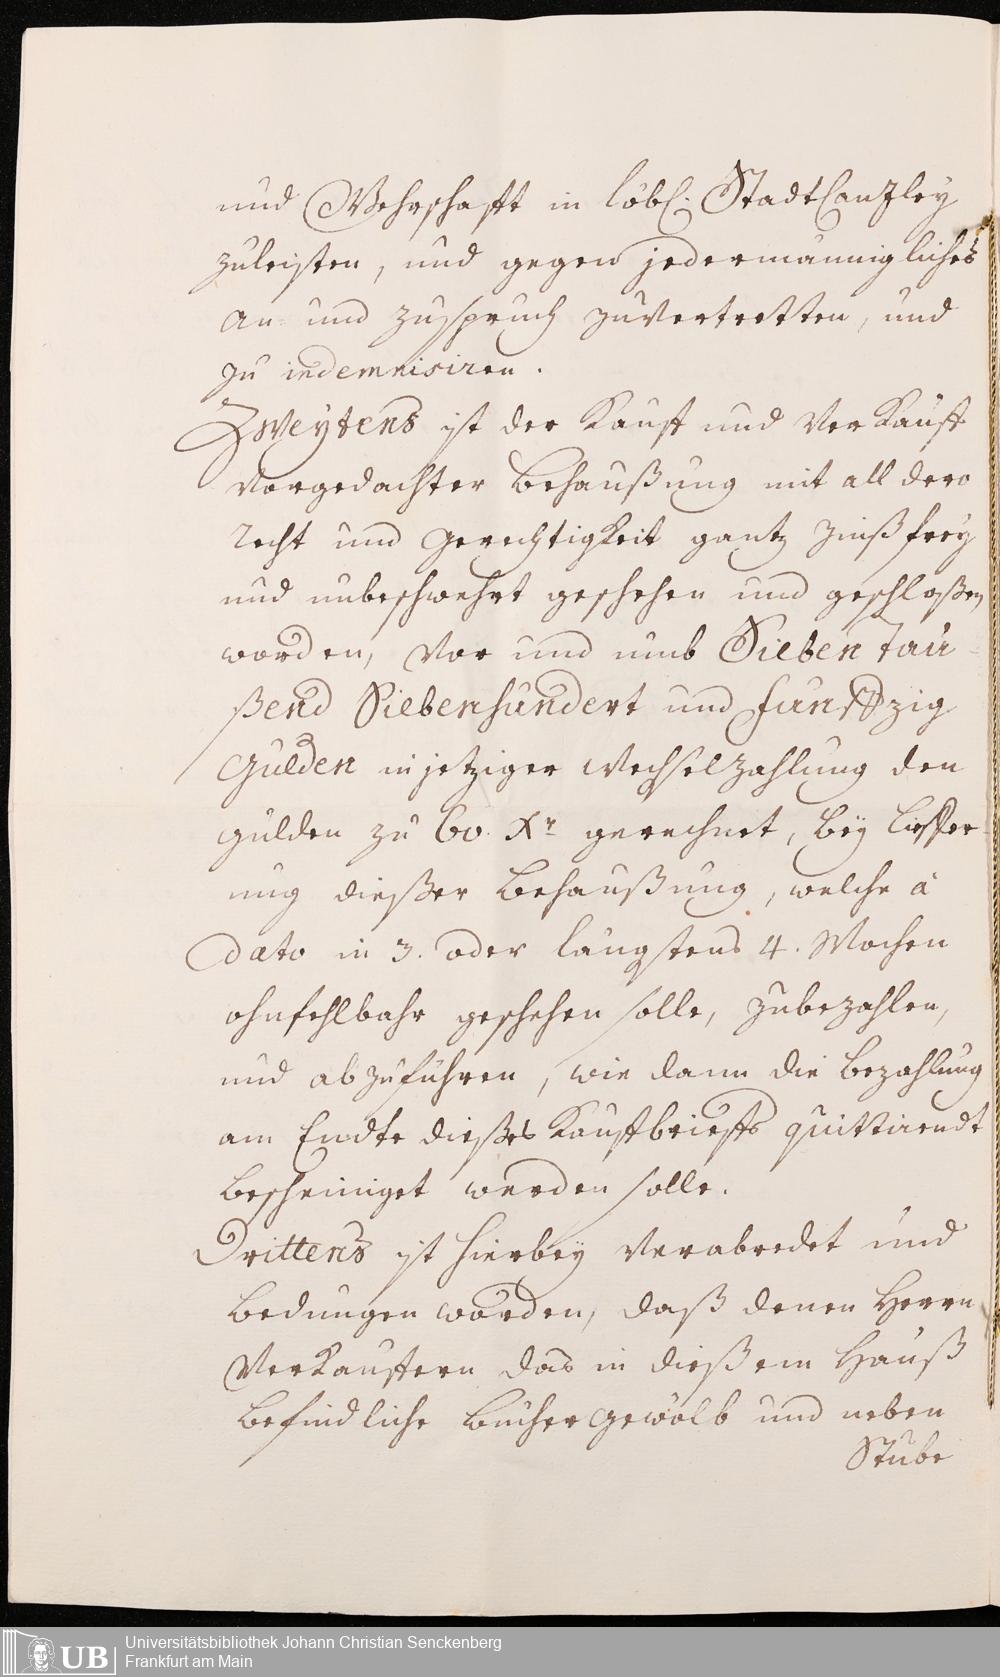 und Wehrschafft in löbl. StadtCanzley
zuleisten, und gegen jedermännigliches
an- und zuspruch zuvertretten, und
zu indemnisiren.
Zweytens ist der Kauff und Verkauff
vorgedachter Behaußung mit all dero
recht und Gerechtigkeit gantz zinßfrey
und unbeschwehrt geschehen und geschloßen
worden, vor und umb Sieben Tau-
ßend Siebenhundert und Funffzig
Gulden in jetziger Wechselzahlung den
Gulden zu 60. Xr gerechnet, bey Lieffer-
ung dießer Behaußung, welche à
dato in 3. oder längstens 4. Wochen
ohnfehlbahr geschehen solle, zubezahlen,
und abzuführen, wie dann die Bezahlung
am Endte dießes Kauffbrieffs quittirendt
bescheiniget werden solle.
Drittens ist hierbey verabredet und
bedungen worden, daß denen Herrn
Verkauffern das in dießem Hauß
befindliche Büchergewölb und neben
Stube
Universitätsbibliothek Johann Christian Senckenberg
UB
Frankfurt am Main